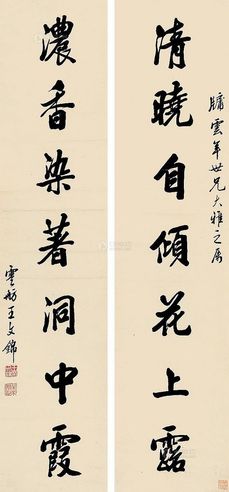 牗雲年世兄大雅之屬
清曉自傾花上露
濃香染著洞中霞
雲舫王文錦